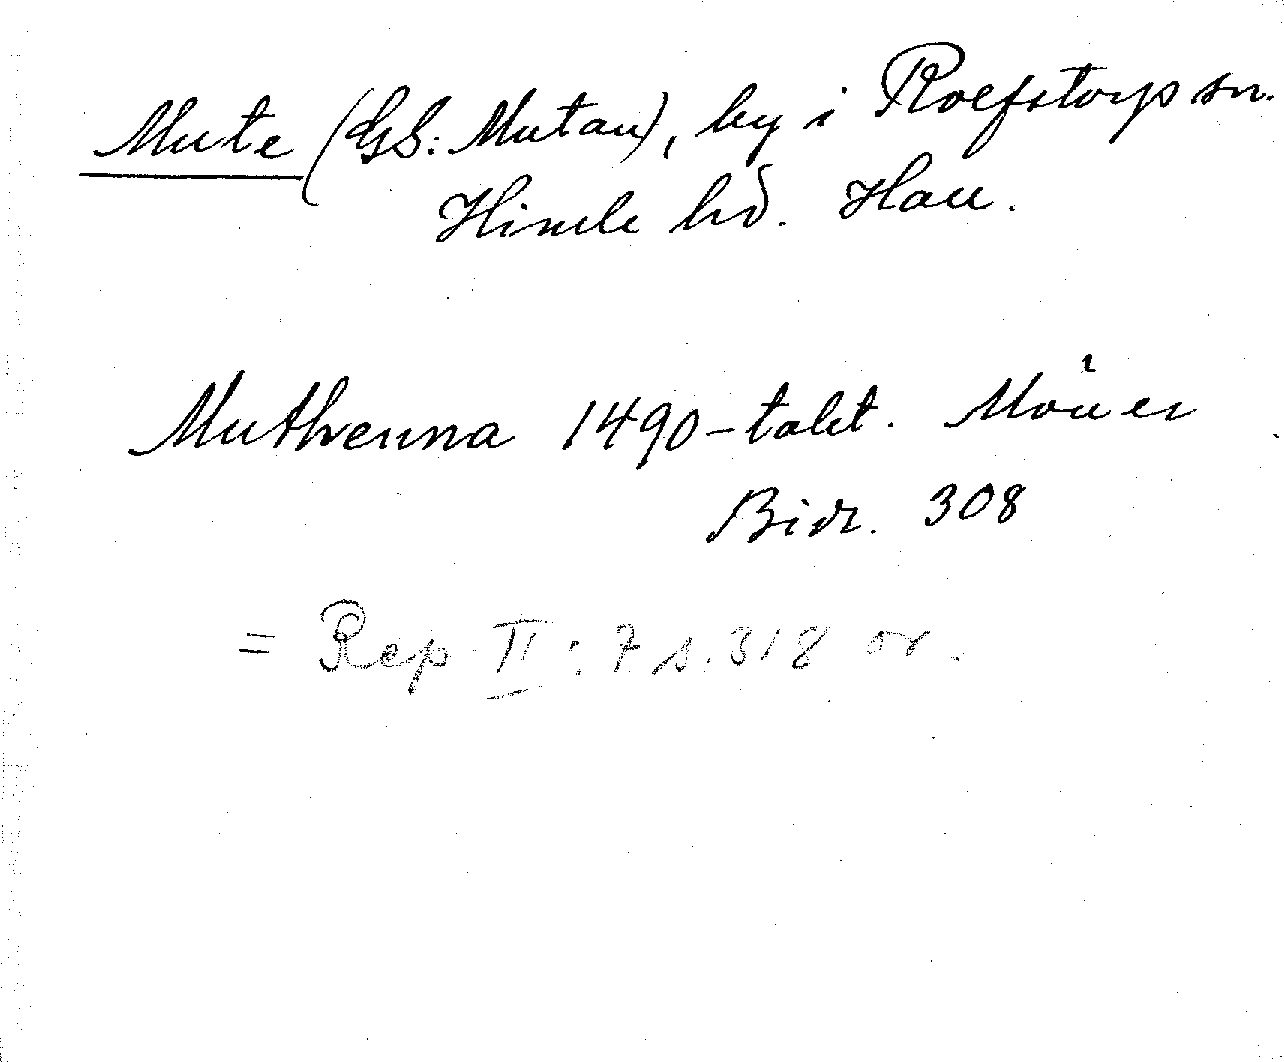 Mute (GS: Mutan), by i Rolfstorps sn.
Himle hd. Hall.
Muthenna 1490-talet. Möller
Bidr. 308
= Rep II: 7 s. 318 or.